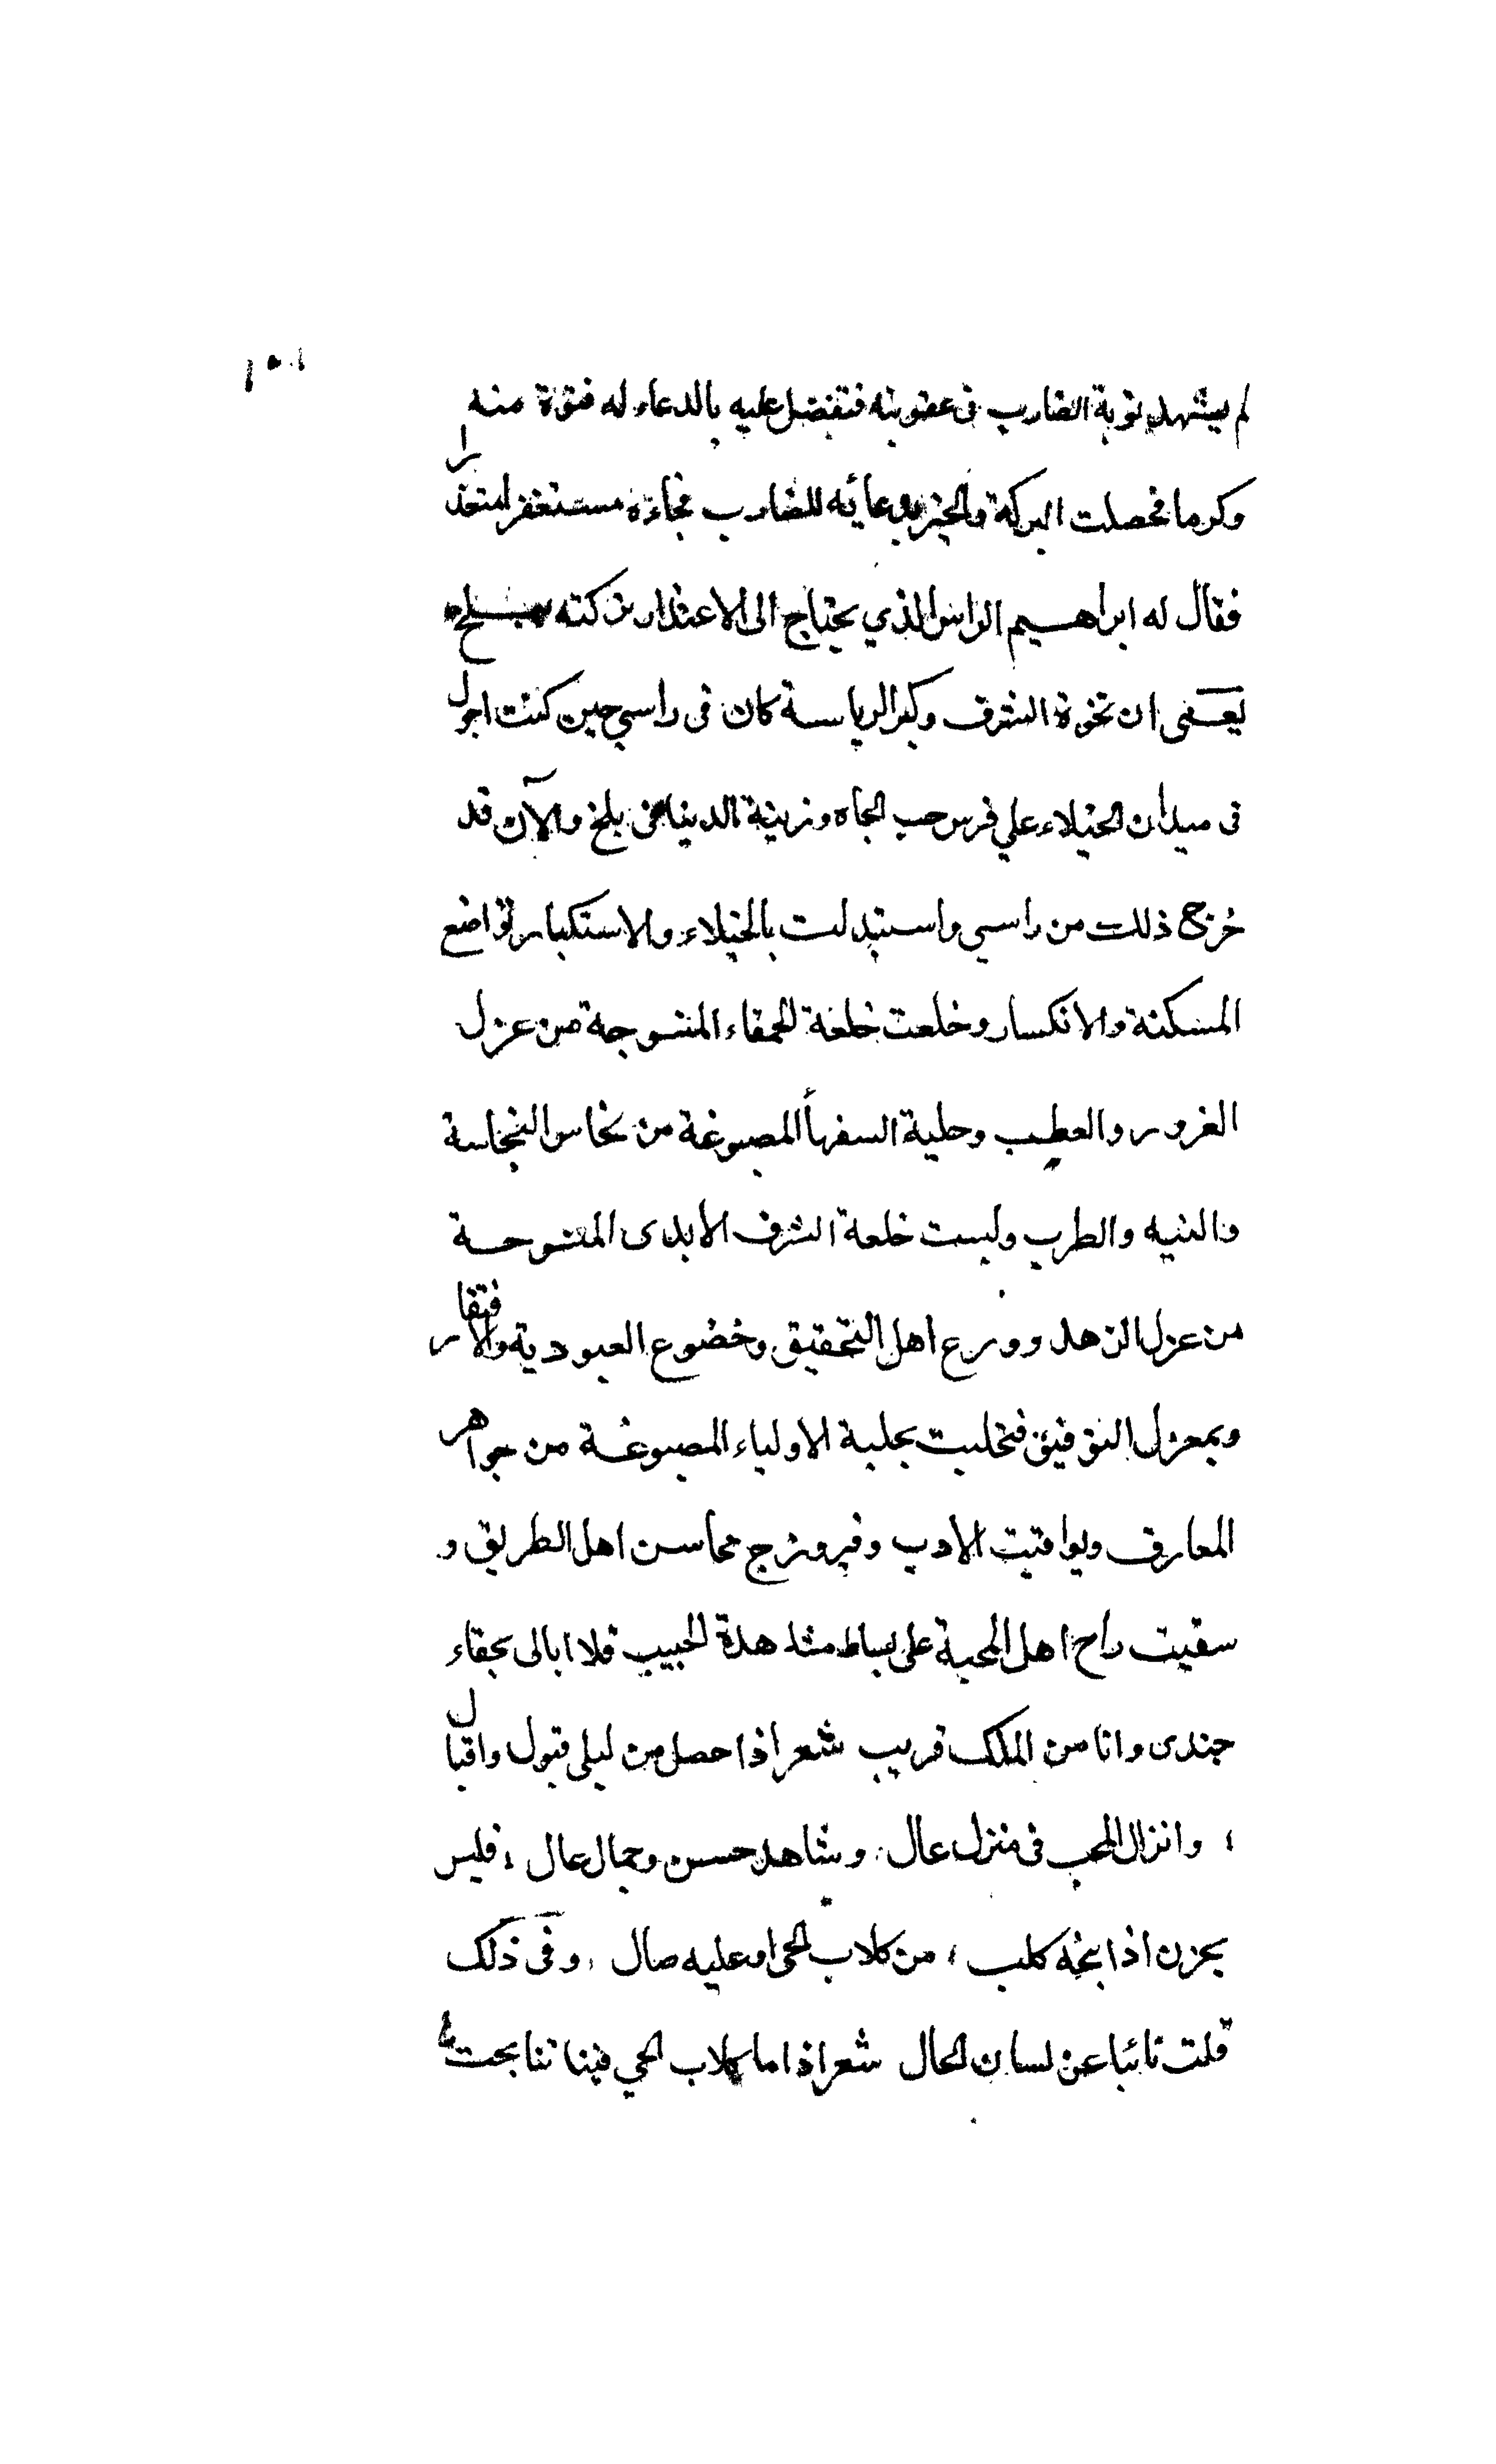 ١٥١
لم يشهد توبة الضارب فى عقوبته فتفضل عليه بالدعاء له فتوة منه
وكرما فحصلت البركة والخير بدعائه للضارب فجاءه مستغفرا متعذرا
فقال له ابراهيم الراس الذي يحتاج الى الاعتذار تركته ببلخ
يعنى ان نخوة الشرف وكبر الرياسة كان فى راسي حين كنت اجول
فى ميدان الخيلاء علي فرس حب الجاه وزينة الدنيا فى بلخ والآن قد
خرج ذلك من راسي واستبدلت بالخيلاء والاستكبار تواضع
المسكنة والانكسار وخلعت خلعة الحمقاء المنسوجة من غزل
الغرور والعطب وحلية السفهاأ المصبوغة من نحاس النجاسة
والتيه والطرب ولبست خلعة الشرف الابدى المنسوجة
من غزل الزهد وورع اهل التحقيق وخضوع العبودية والافتقار
وبمغزل التوفيق فتحليت بحلية الاولياء المصبوغة من جواهر
المعارف ويواقيت الادب وفيروزج محاسن اهل الطريق و
سقيت راح اهل المحبة على بساط مشاهدة الحبيب فلا ابالى بجفاء
جندى وانا من الملك قريب شعر اذا حصل من ليلى قبول واقبال
؛ وانزال المحب فى منزل عال . وشاهد حسن وجمال عال ؛ فليس
يحزن اذا نبحه كلب ، من كلاب الحى او عليه صال ، وفى ذلك
قلت نائبا عن لسان الحال شعر اذا ما كلاب الحي فينا تنابحت